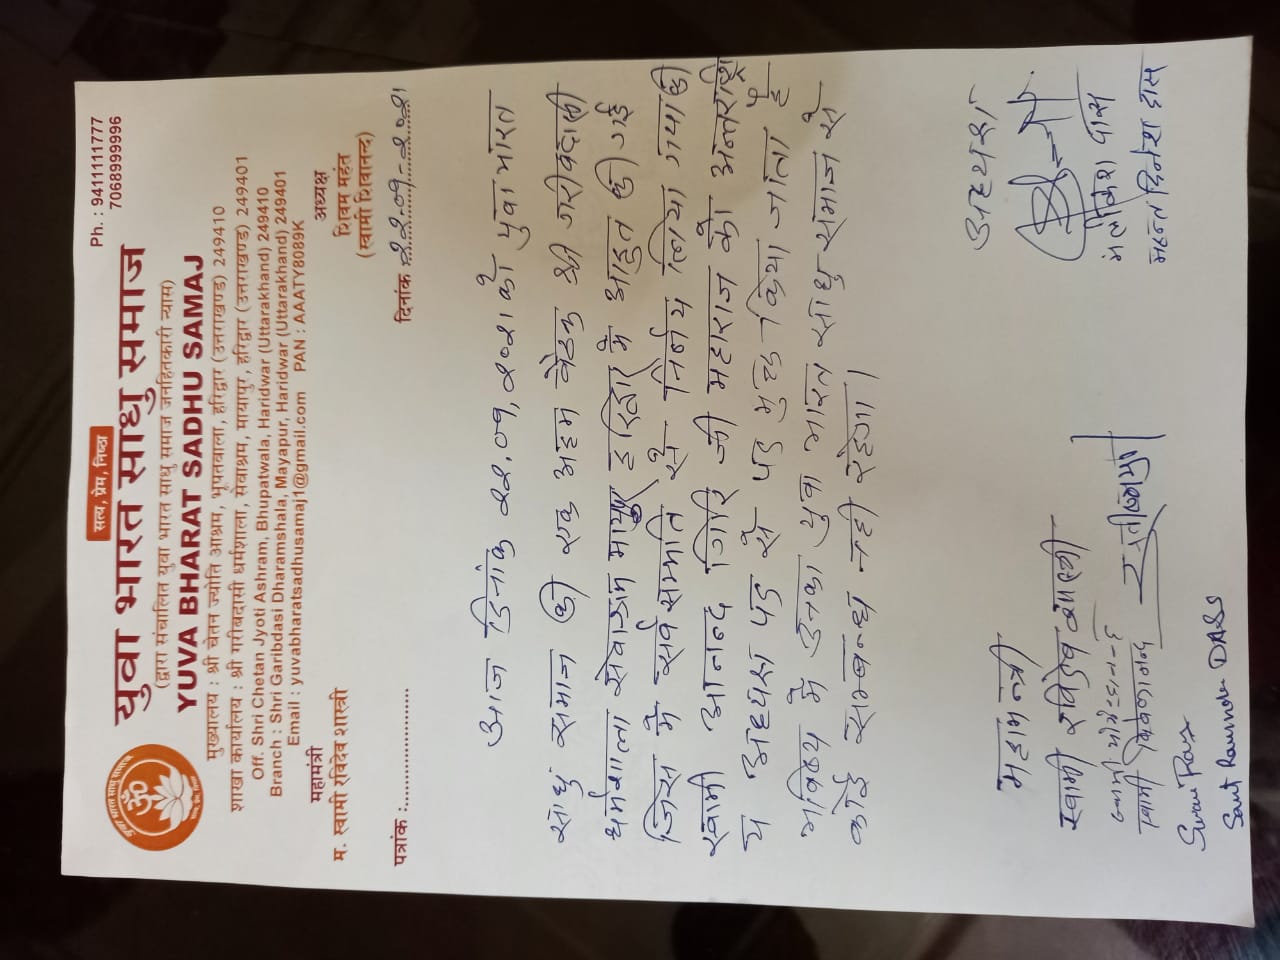 सत्य, प्रेम, निष्ठा
Ph. : 9411111777
7068999996
युवा भारत साधु समाज
(द्वारा संचालित युवा भारत साधु समाज जनहितकारी न्यास)
YUVA BHARAT SADHU SAMAJ
मुख्यालय : श्री चेतन ज्योति आश्रम, भूपतवाला, हरिद्वार (उत्तराखण्ड) 249410
शाखा कार्यालय : श्री गरीबदासी धर्मशाला, सेवाश्रम, मायापुर, हरिद्वार (उत्तराखण्ड) 249401
Off. Shri Chetan Jyoti Ashram, Bhupatwala, Haridwar (Uttarakhand) 249410
Branch : Shri Garibdasi Dharamshala, Mayapur, Haridwar (Uttarakhand) 249401
Email : yuvabharatsadhusamaj1@gmail.com PAN : AAATY8089K
महामंत्री अध्यक्ष
म. स्वामी रविदेव शास्त्री शिवम महंत
(स्वामी शिवानन्द)
पत्रांक : दिनांक २२-०१-२०२१
आज दिनांक २२,०१,२०२१ को युवा भारत
साधु समाज की एक अहम बैठक श्री गरीबदासी
धर्मशाला सेवाश्रम मायापुर हरिद्वार में आहुत की गई
जिस में सर्वसम्मति से निर्णय लिया गया की
स्वामी आनन्द गिरि जी महाराज को अन्तर्राष्ट्रि
य अध्यक्ष पद से पद मुक्त किया जाता है
भविष्य में उनका युवा भारत साधु समाज से
कोई सम्बन्ध नही रहेगा।
महामन्त्री अध्यक्ष
स्वामी रविदेव शास्त्री
महन्त दिनेश दास
स्वामी
Sant Ravinder DASS